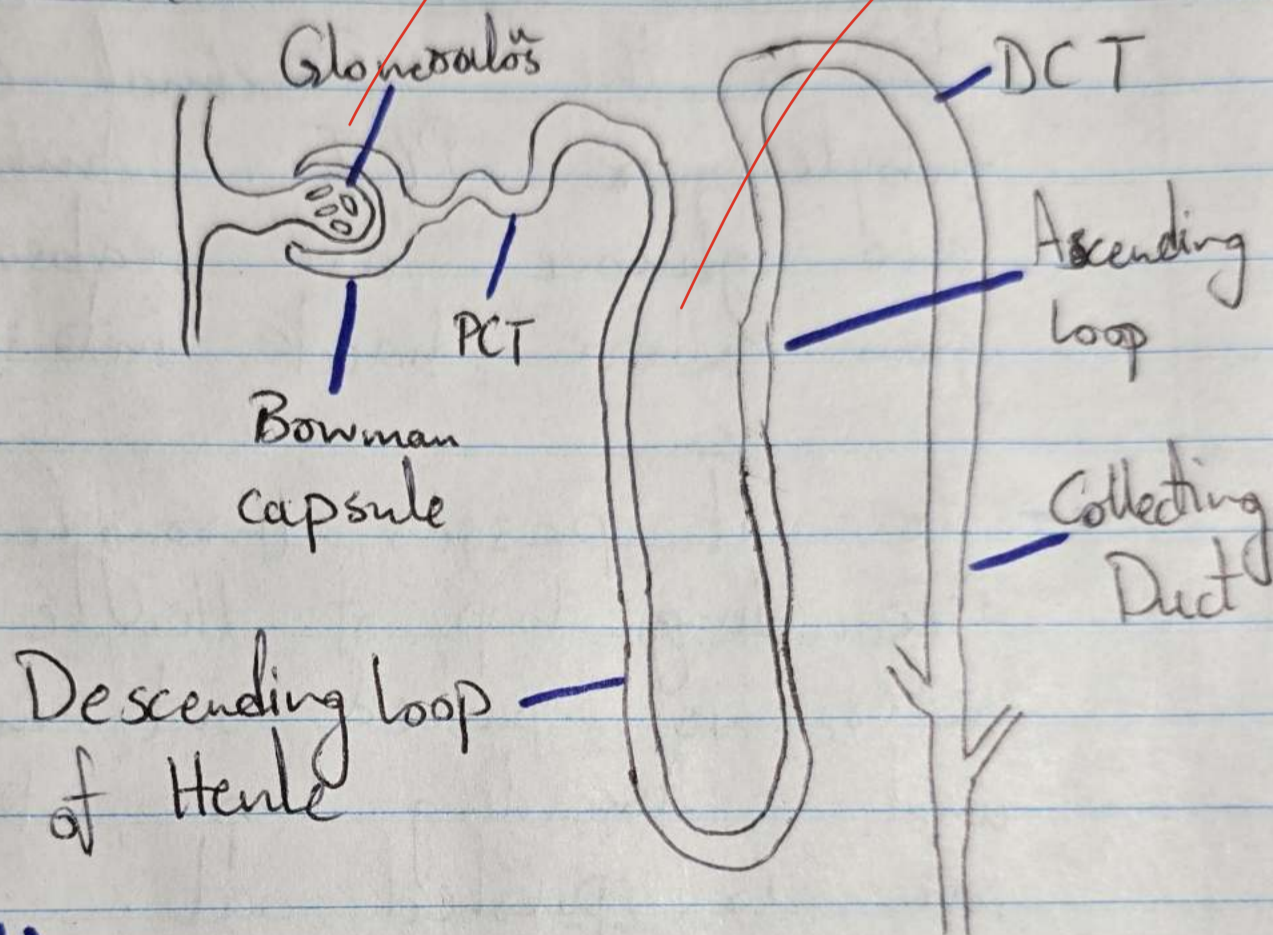 Glomerulüs
DCT
Ascending
loop
PCT
Bowman
capsule
Collecting
Duct
Descending loop
of Henle